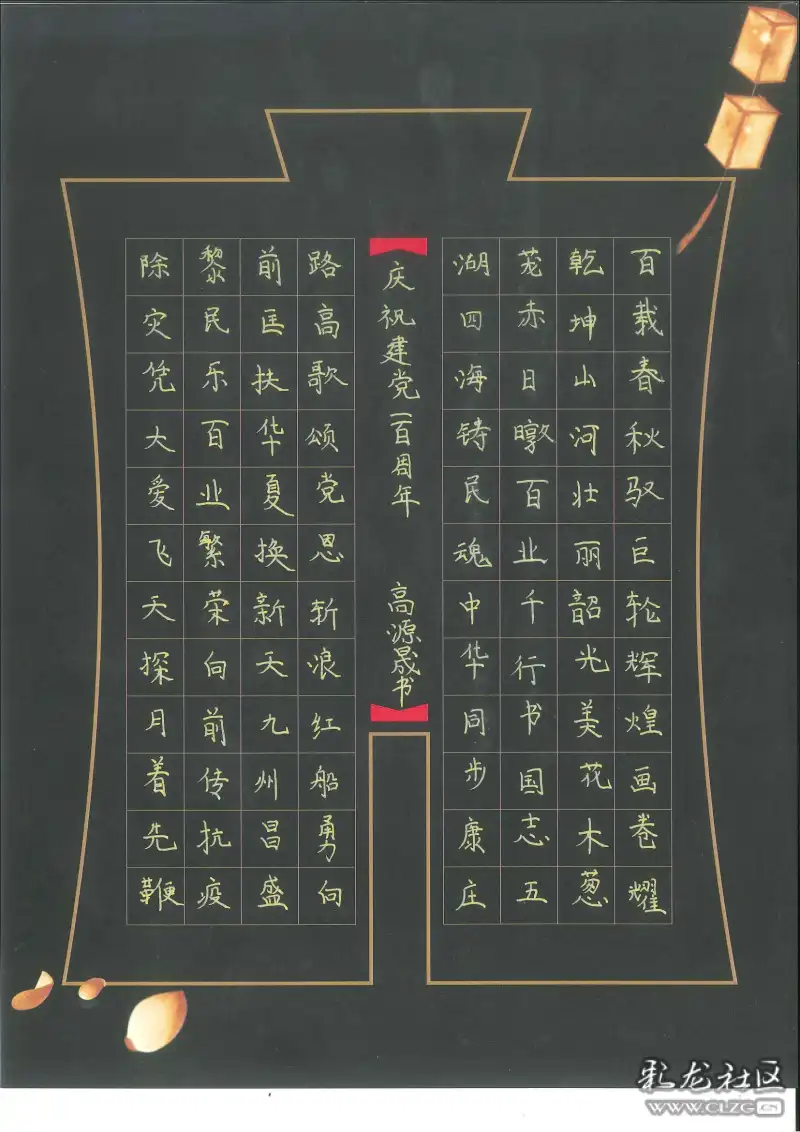 百栽春秋驭巨轮辉煌画卷耀
乾坤山河壮丽韶光美花木葱
茏赤日暾百业千行书国志五
湖四海铸民魂中华同步康庄
庆祝建党一百周年 高源晟书
路高歌颂党恩斩浪红船勇向
前匡扶华夏换新天九州昌盛
黎民乐百业繁荣向前传抗疫
除灾凭大爱飞天探月着先鞭
彩龙社区
www.CLZG.CN